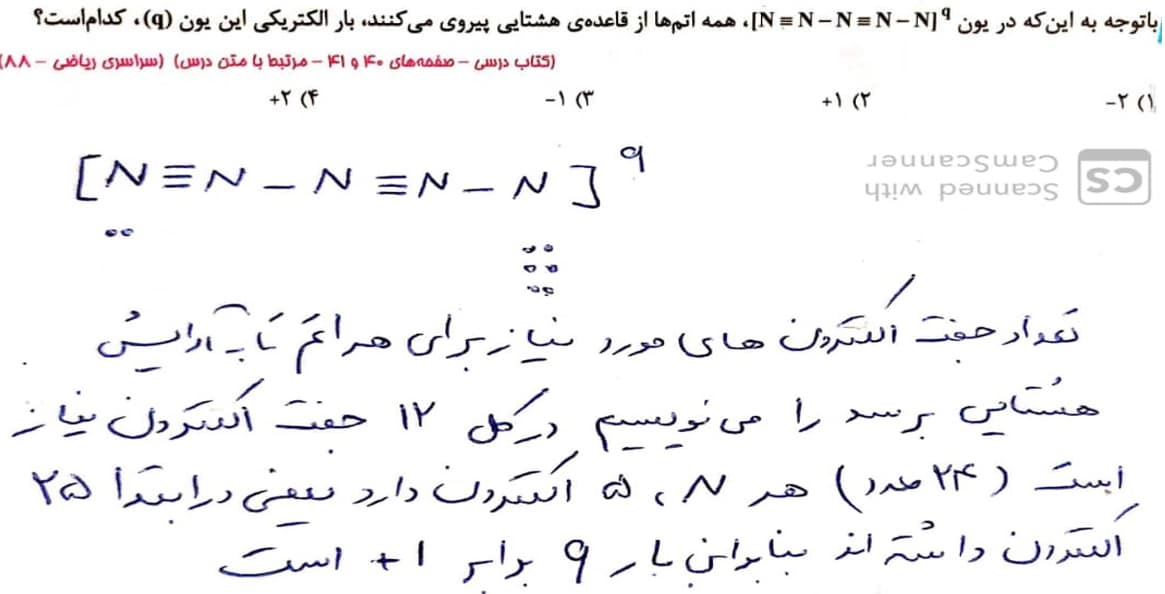 باتوجه به این‌که در یون [N≡N−N≡N−N]^q، همه اتم‌ها از قاعده‌ی هشتایی پیروی می‌کنند، بار الکتریکی این یون (q)، کدام‌است؟
(کتاب درسی – صفحه‌های ۴۰ و ۴۱ – مرتبط با متن درس) (سراسری ریاضی – ۸۸)
۱) ۲− ۲) ۱+ ۳) ۱− ۴) ۲+
[N≡N−N≡N−N]^q
CS Scanned with
CamScanner
تعداد جفت الکترون های مورد نیاز برای هر اتم تا به آرایش
هشتایی برسد را می نویسیم در کل ۱۲ جفت الکترون نیاز
است (۲۴ عدد) هر N، ۵ الکترون دارد یعنی در ابتدا ۲۵
الکترون داشته اند بنابراین بار q برابر ۱+ است